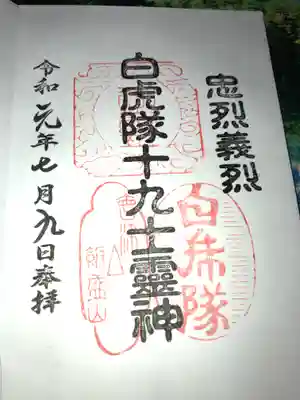 忠烈義烈
白虎隊十九士靈神
令和元年七月九日奉拝
白帋隊
飯盛山